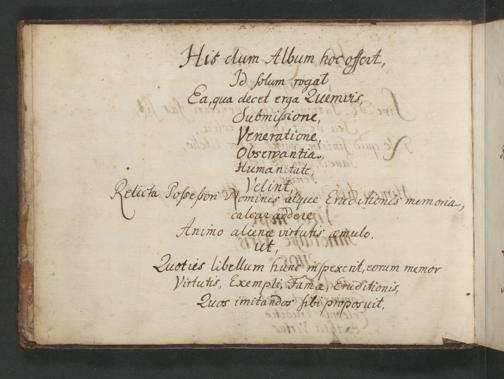 His dum Album hoc offert,
Id solum rogat
Ea, qua decet erga Quemvis,
Submissione,
Veneratione,
Observantia,
Humanitate,
Velint,
Relicta Possessori Nominis atque Eruditionis memoria,
calcar addere
Animo alienæ virtutis æmulo.
ut,
Quoties libellum hunc inspexerit, eorum memor
Virtutis, Exempli, Famæ, Eruditionis,
Quos imitandos sibi proposuit.